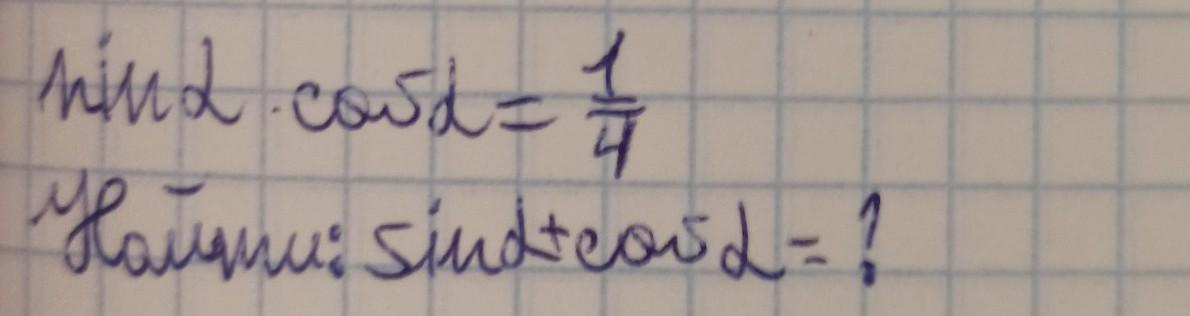 sinα · cosα = 1/4
Найти: sinα + cosα = ?